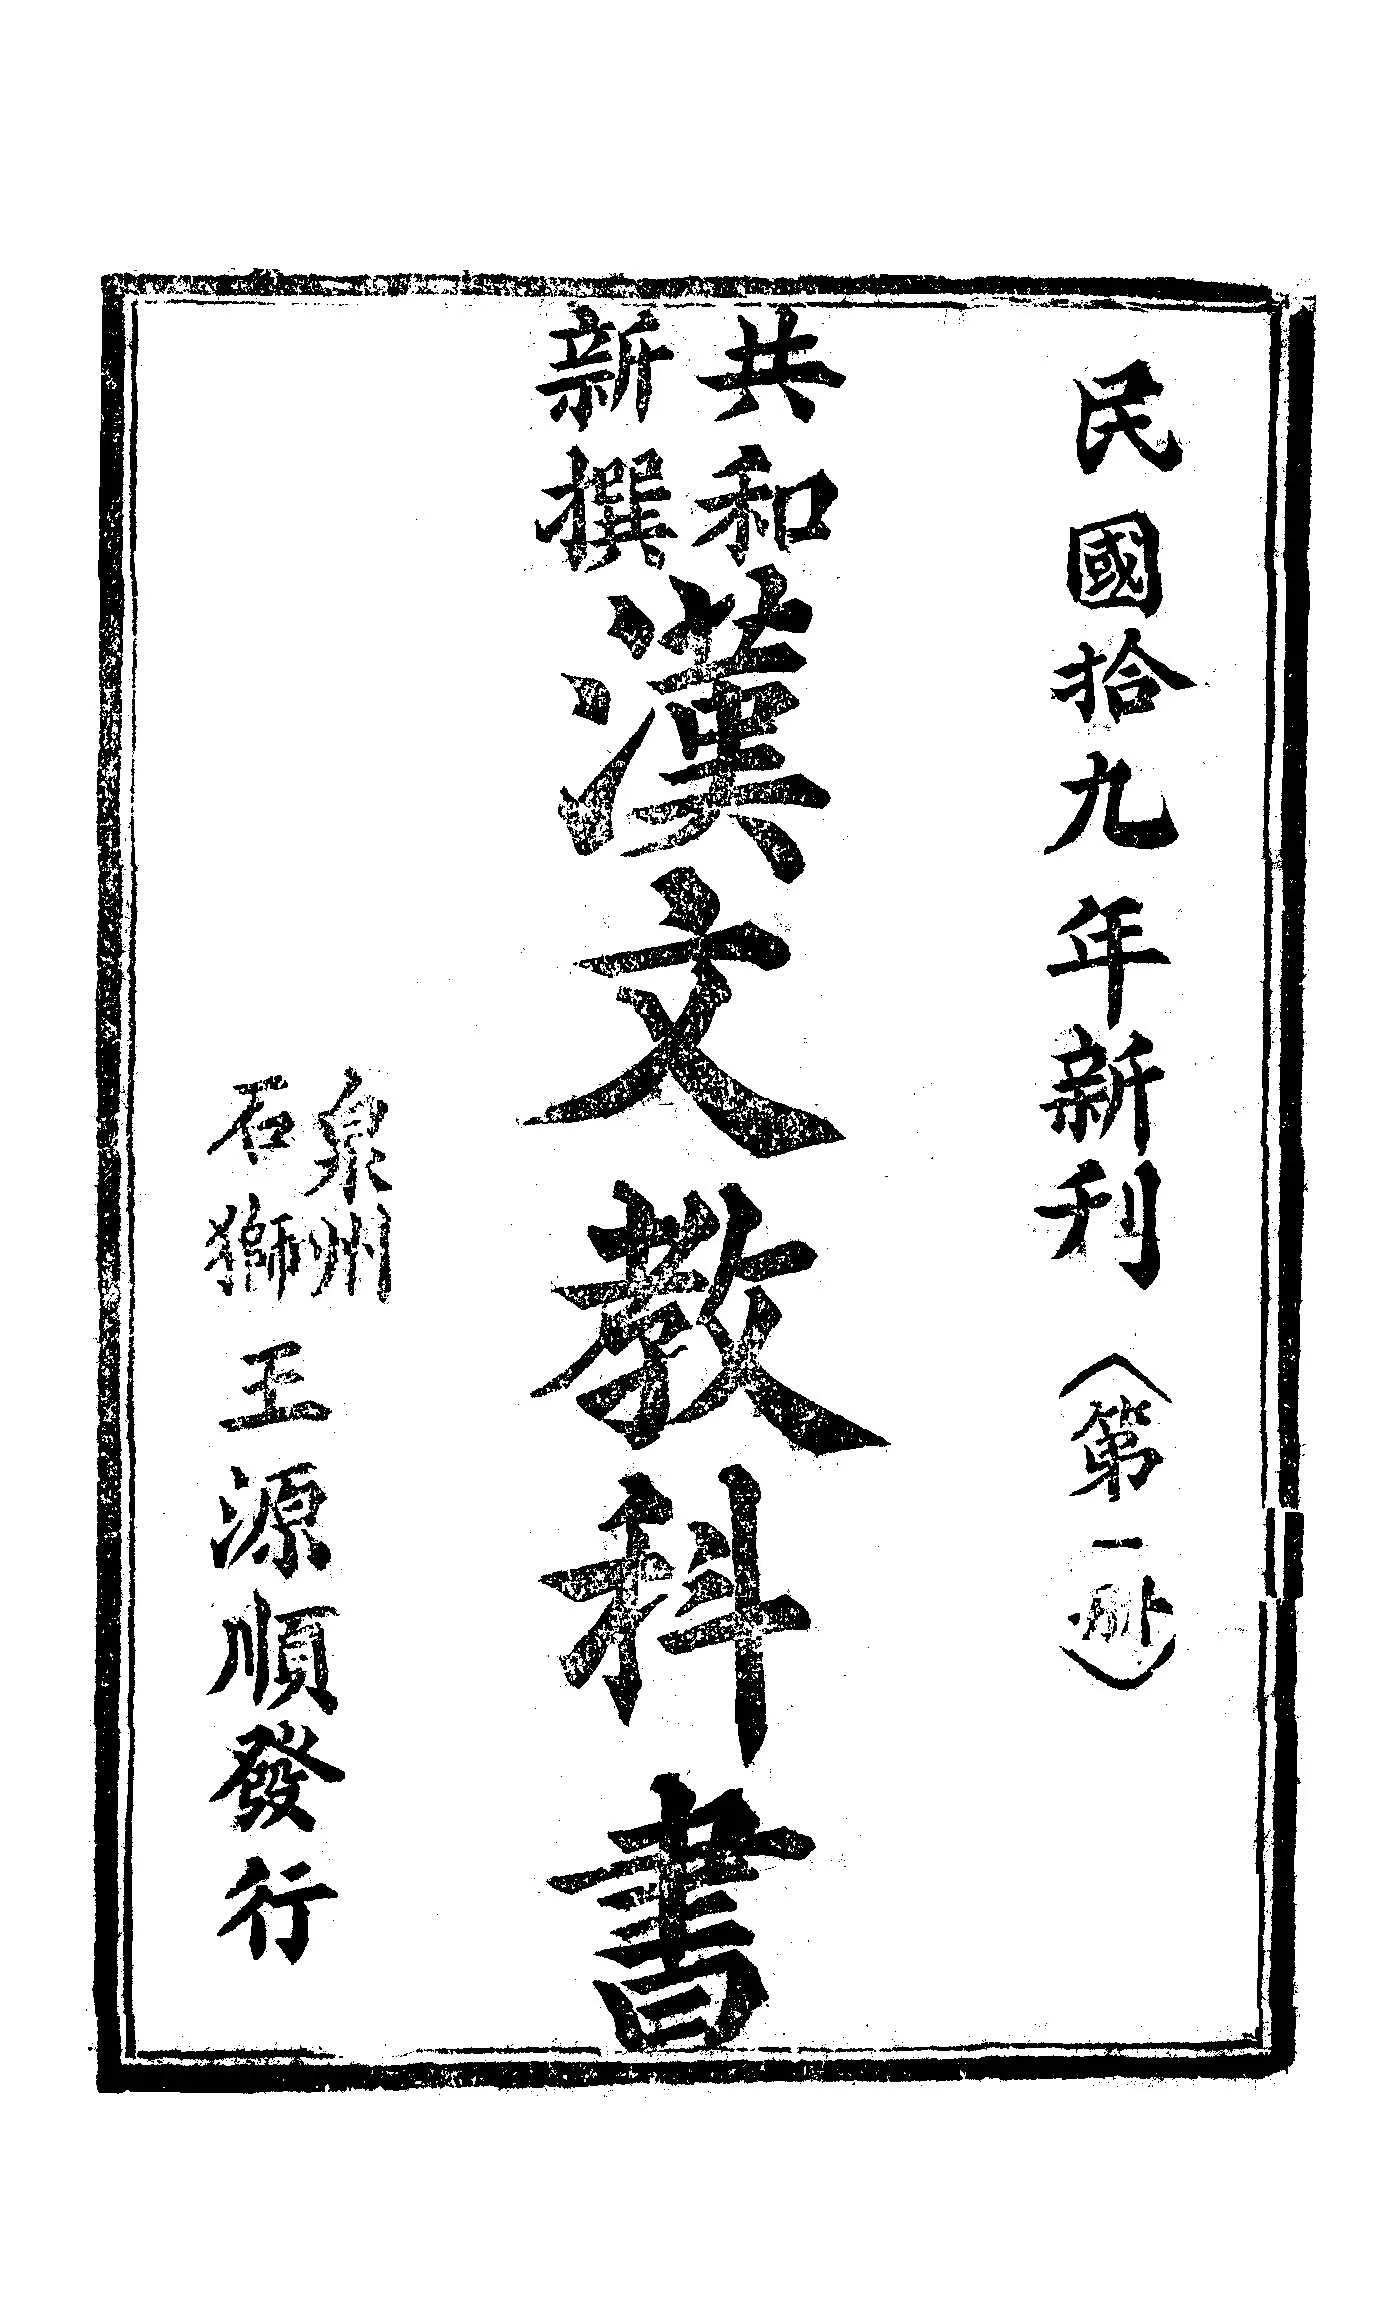 民國拾九年新利（第一册）
共和
新撰
漢文教科書
泉州
石獅
王源順發行